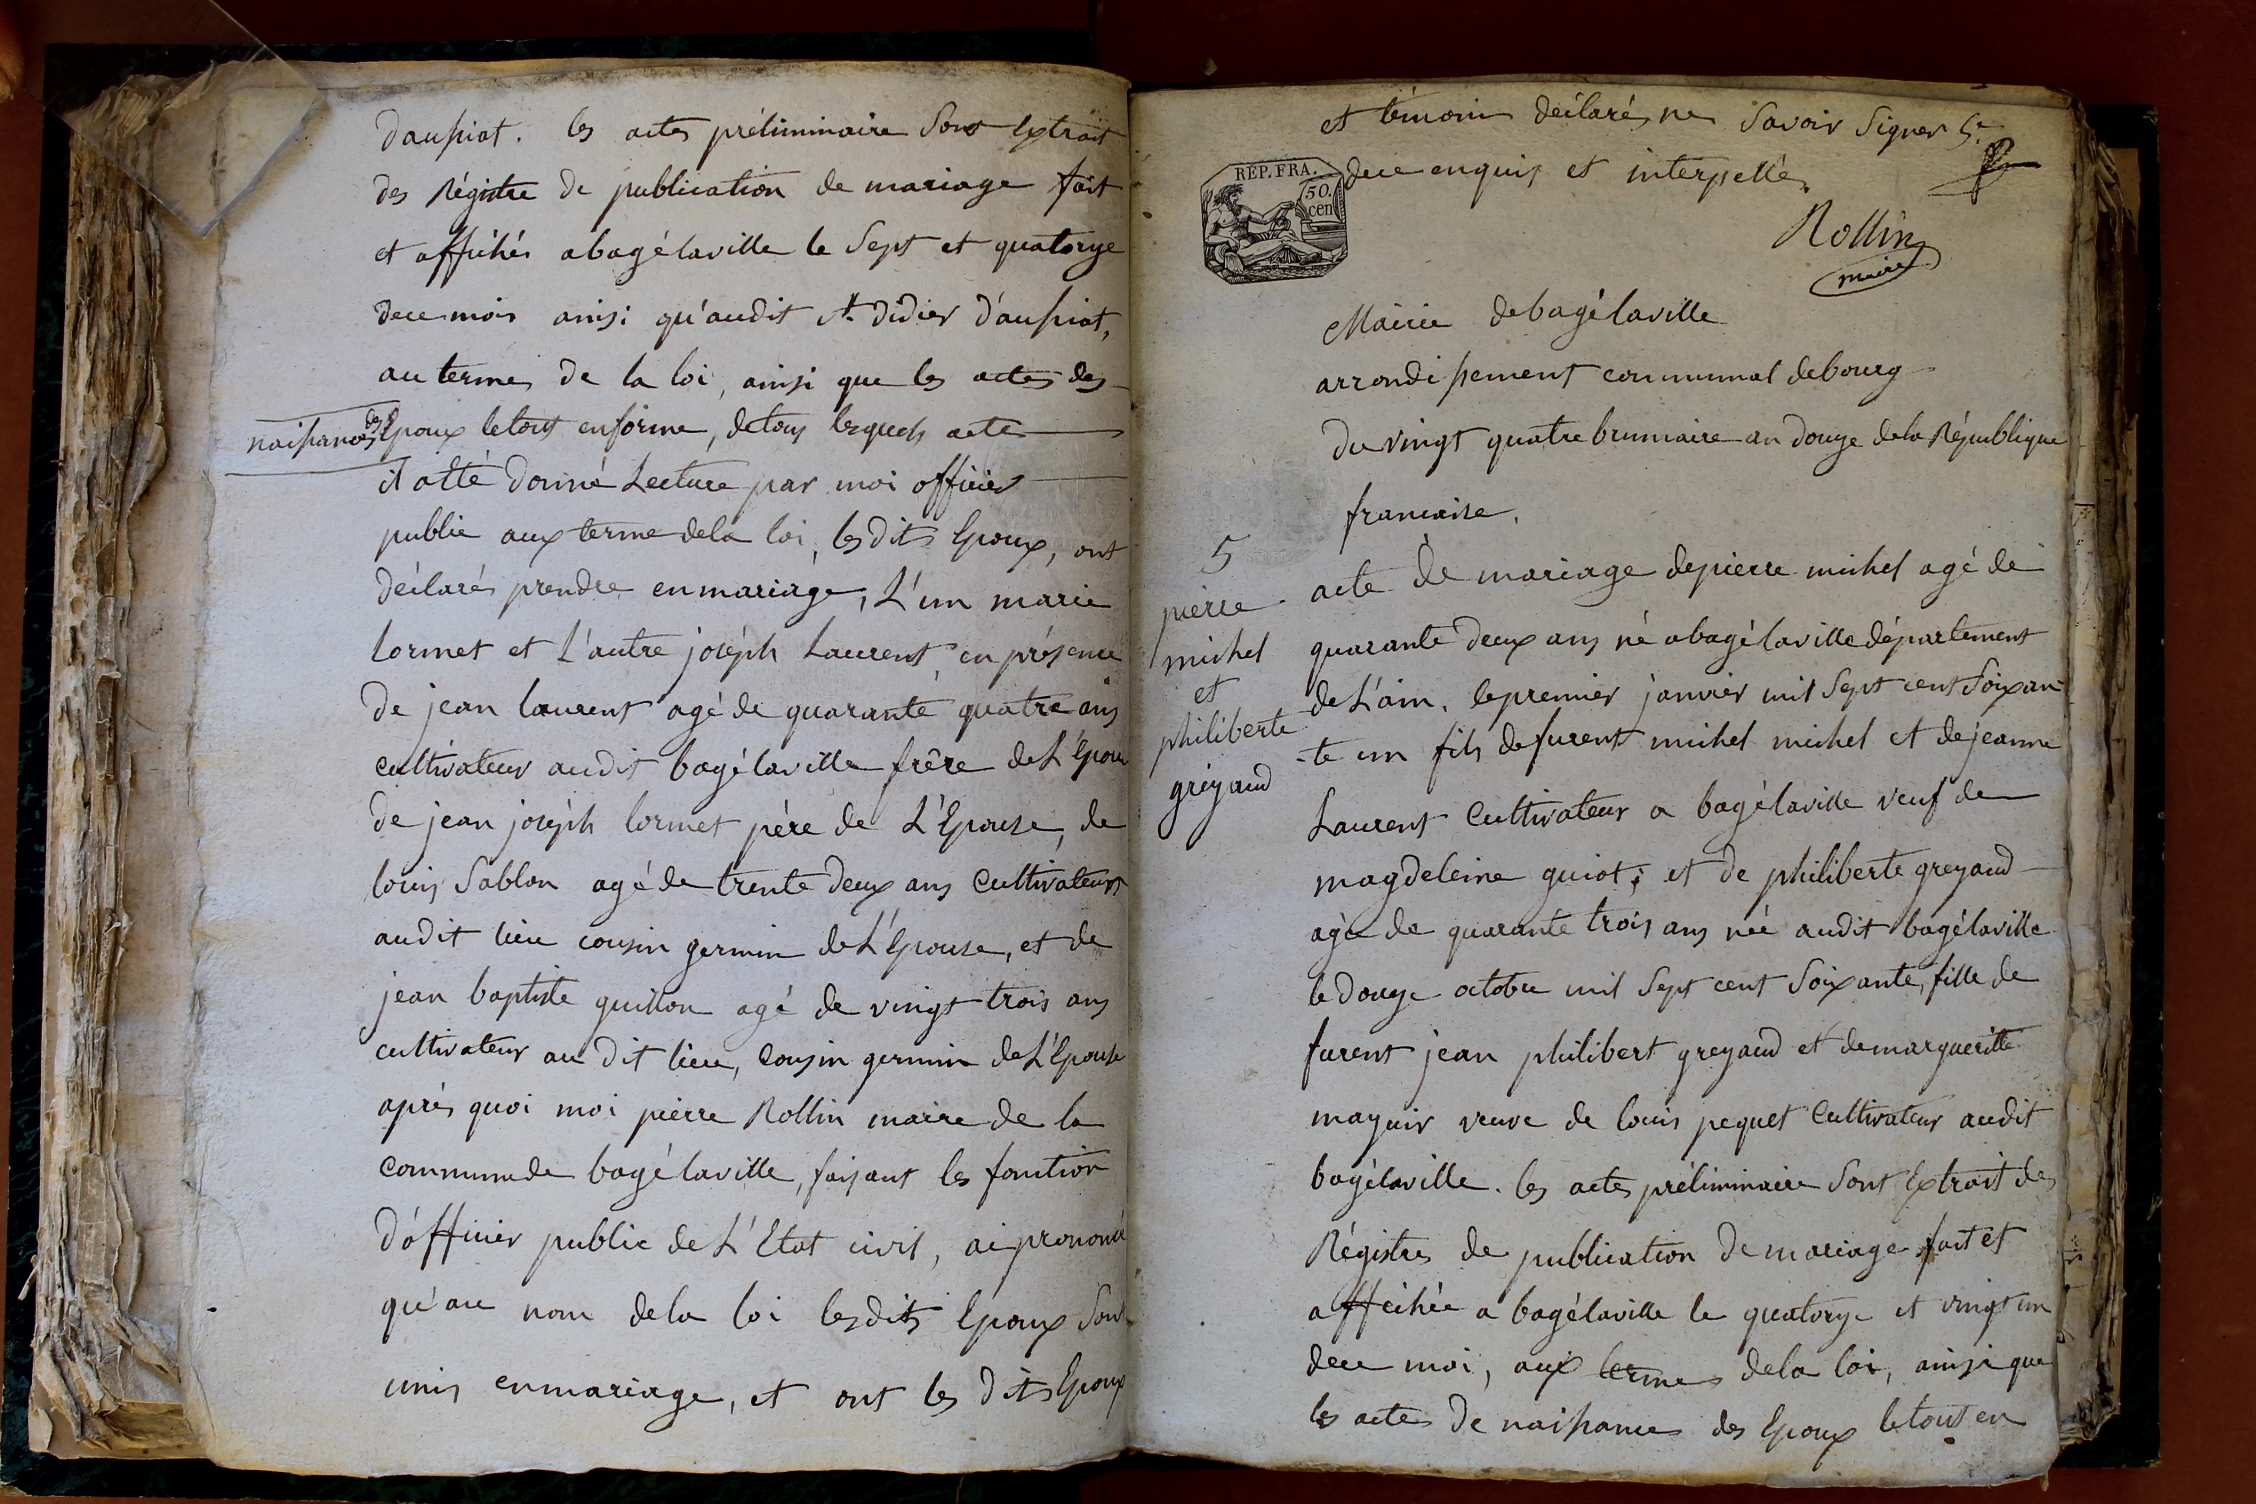 d'aussiat. les actes préliminaire Sont Extrait
des Régistre de publication de mariage fait
et affichés a bagélaville le Sept et quatorze
dece mois ainsi qu'audit St. didier d'aussiat,
au termes de la loi, ainsi que les actes des
naissances des Epoux letout enforme, detous lesquels acte
il aété donné Lecture par moi officier
public aux terme dela loi, lesdits Epoux, ont
déclarés prendre enmariage, L'un marie
lormet et L'autre joséph Laurent en présence
de jean laurent agé de quarante quatre ans
cultivateur audit bagélaville frère de L'Epoux
de jean joséph lormet père de L'Epouse, de
louis Sablon agé de trente deux ans Cultivateur
audit lieu cousin germin de L'Epouse, et de
jean baptiste guillon agé de vingt trois ans
cultivateur au dit lieu, cousin germin de L'Epouse
après quoi moi pierre Rollin maire de la
commune de bagélaville, faisant les fonction
d'officier public de L'Etat civil, ai prononcé
qu'au nom dela loi lesdits Epoux Sont
unis enmariage, et ont les dits Epoux
et témoins déclarés ne Savoir Signer
dece enquis et interpellé.
REP. FRA.
50.
cen
Rollin
maire
Mairie debagélaville
arrondissement communal debourg
du vingt quatre brumaire an douze dela République
francaise.
5
pierre
michel
et
philiberte
greyaud
acte de mariage depierre michel agé de
quarante deux ans né abagélaville département
de L'ain, lepremier janvier mil Sept cent Soixan
-te un fils defurent michel michel et dejeanne
Laurent Cultivateur a bagélaville veuf de
magdeleine guiot; et de philiberte greyaud
agée de quarante trois ans née audit bagélaville
le douze octobre mil Sept cent Soixante, fille de
furent jean philibert greyaud et demarguerite
mayuir veuve de louis pequet Cultivateur audit
bagélaville. les actes préliminaire Sont Extrait des
Régistres de publication de mariage fait et
affichée a bagélaville le quatorze et vingt un
dece moi, aux termes dela loi, ainsi que
les actes de naissances des Epoux letout en